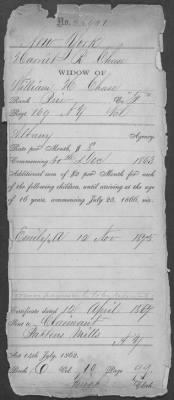 No.
New York
Harriet R. Chase
WIDOW OF
William H. Chase
Rank Priv Co "F"
Regt 169 N.Y. Vol
Albany Agency.
Rate per Month, $ 8
Commencing 30th Dec 1863
Additional sum of $2 per Month for each
of the following children, until arriving at the age
of 16 years, commencing July 25, 1866, viz:
Emily A 12 Nov
Certificate dated 12 April 1867
Sent to Claimant
Mills
N.Y.
Act 14th July, 1862.
Book D Vol. 10 Page 99
Clerk.